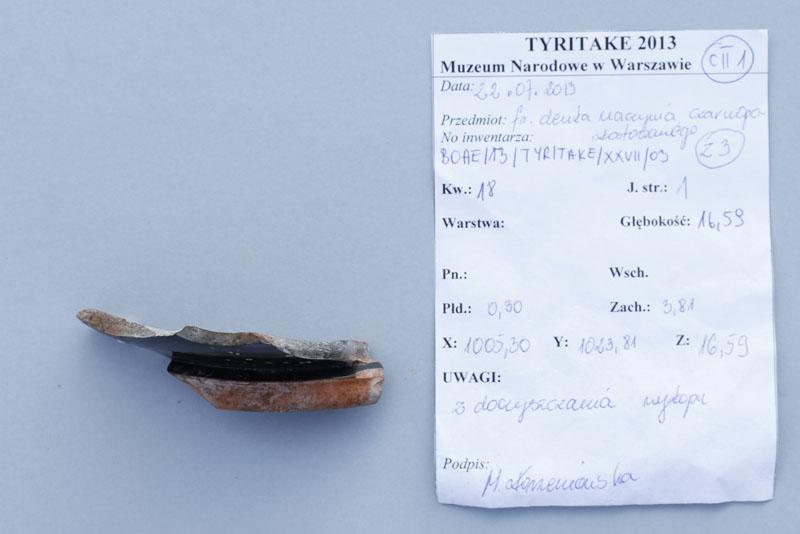 TYRITAKE 2013
Muzeum Narodowe w Warszawie
CII1
Data: 22.07.2013
Przedmiot: fr. denka naczynia czarnopo
No inwentarza:
BOAE/13/TYRITAKE/XXVII/03
Z3
Kw.: 18 J. str.: 1
Warstwa: Głębokość: 16,59
Pn.: Wsch.
Płd.: 0,30 Zach.: 3,81
X: 1005,30 Y: 1023,81 Z: 16,59
UWAGI:
z doczyszczania wykopu
Podpis:
M.